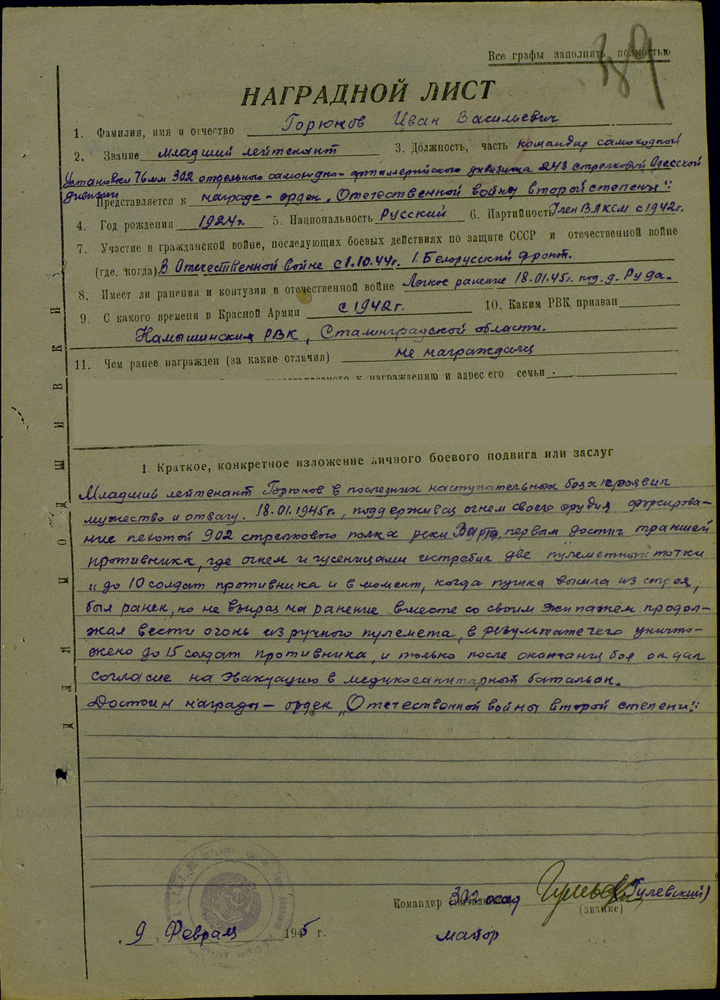 Все графы заполнять полностью
389
НАГРАДНОЙ ЛИСТ
1. Фамилия, имя и отчество Горюнов Иван Васильевич
2. Звание младший лейтенант 3. Должность, часть командир самоходной
установки 76мм 302 отдельного самоходно-артиллерийского дивизиона 248 стрелковой Одесской
дивизии
Представляется к награде - орден „Отечественной войны второй степени".
4. Год рождения 1924г. 5. Национальность Русский 6. Партийность Член ВЛКСМ с 1942г.
7. Участие в гражданской войне, последующих боевых действиях по защите СССР и отечественной войне
(где, когда) В Отечественной войне с 1.10.44г. 1 Белорусский фронт.
8. Имеет ли ранения и контузии в отечественной войне Легкое ранение 18.01.45г. под д. Руда.
9. С какого времени в Красной Армии с 1942г. 10. Каким РВК призван
Камышинским РВК, Сталинградской области.
11. Чем ранее награжден (за какие отличия) не награждался
к награждению и адрес его семьи
1. Краткое, конкретное изложение личного боевого подвига или заслуг
Младший лейтенант Горюнов в последних наступательных боях проявил
мужество и отвагу. 18.01.1945г., поддерживая огнем своего орудия форсирова-
ние пехотой 902 стрелкового полка реки Варта, первым достиг траншей
противника, где огнем и гусеницами истребил две пулеметных точки
и до 10 солдат противника и в момент, когда пушка вышла из строя,
был ранен, но не взирая на ранение вместе со своим экипажем продол-
жал вести огонь из ручного пулемета, в результате чего уничто-
жено до 15 солдат противника, и только после окончания боя он дал
согласие на эвакуацию в медикосанитарный батальон.
Достоин награды - орден „Отечественной войны второй степени".
Командир 302 осад (Гулевский)
(звание)
майор
„9 Февраля 1945 г.
ДЛЯ ПОДШИВКИ